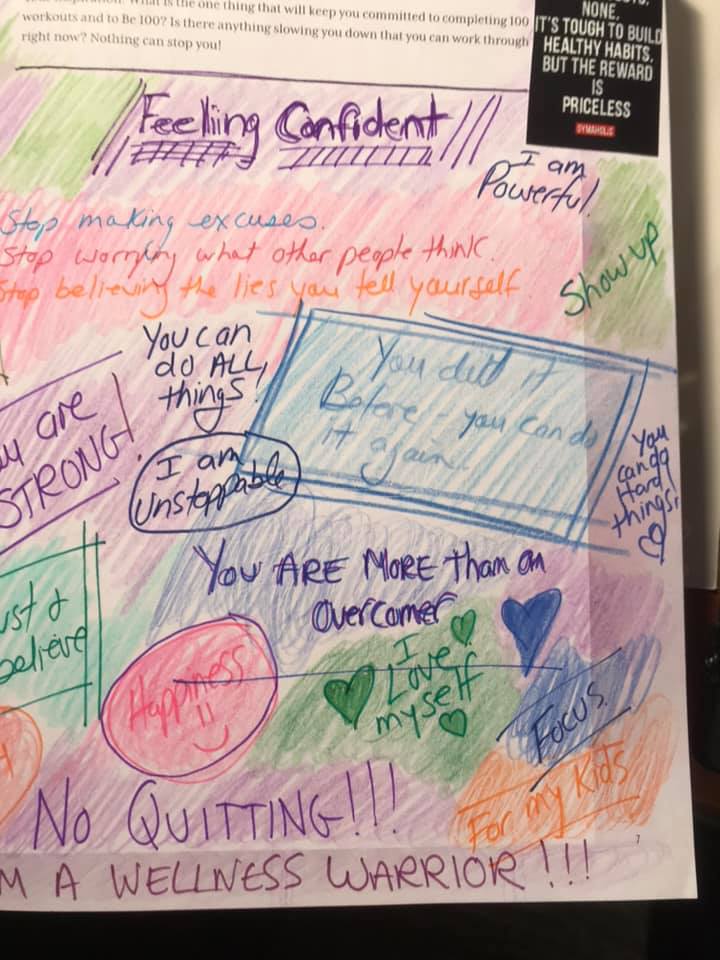 What is the one thing that will keep you committed to completing 100
workouts and to Be 100? Is there anything slowing you down that you can work through
right now? Nothing can stop you!
NONE.
IT'S TOUGH TO BUILD
HEALTHY HABITS,
BUT THE REWARD
IS
PRICELESS
DYMAHOLIC
Feeling Confident
I am
Powerful
Stop making excuses.
Stop worrying what other people think.
Stop believing the lies you tell yourself
Show up
You can
do ALL
things!
You did it
Before - you can do
it again.
are
STRONG!
I am
Unstoppable
You
can do
Hard
things!
You ARE MORE than an
Overcomer
believe
Happiness
I
Love
myself
Focus.
For my Kids
No QUITTING!!!
A WELLNESS WARRIOR!!!
7